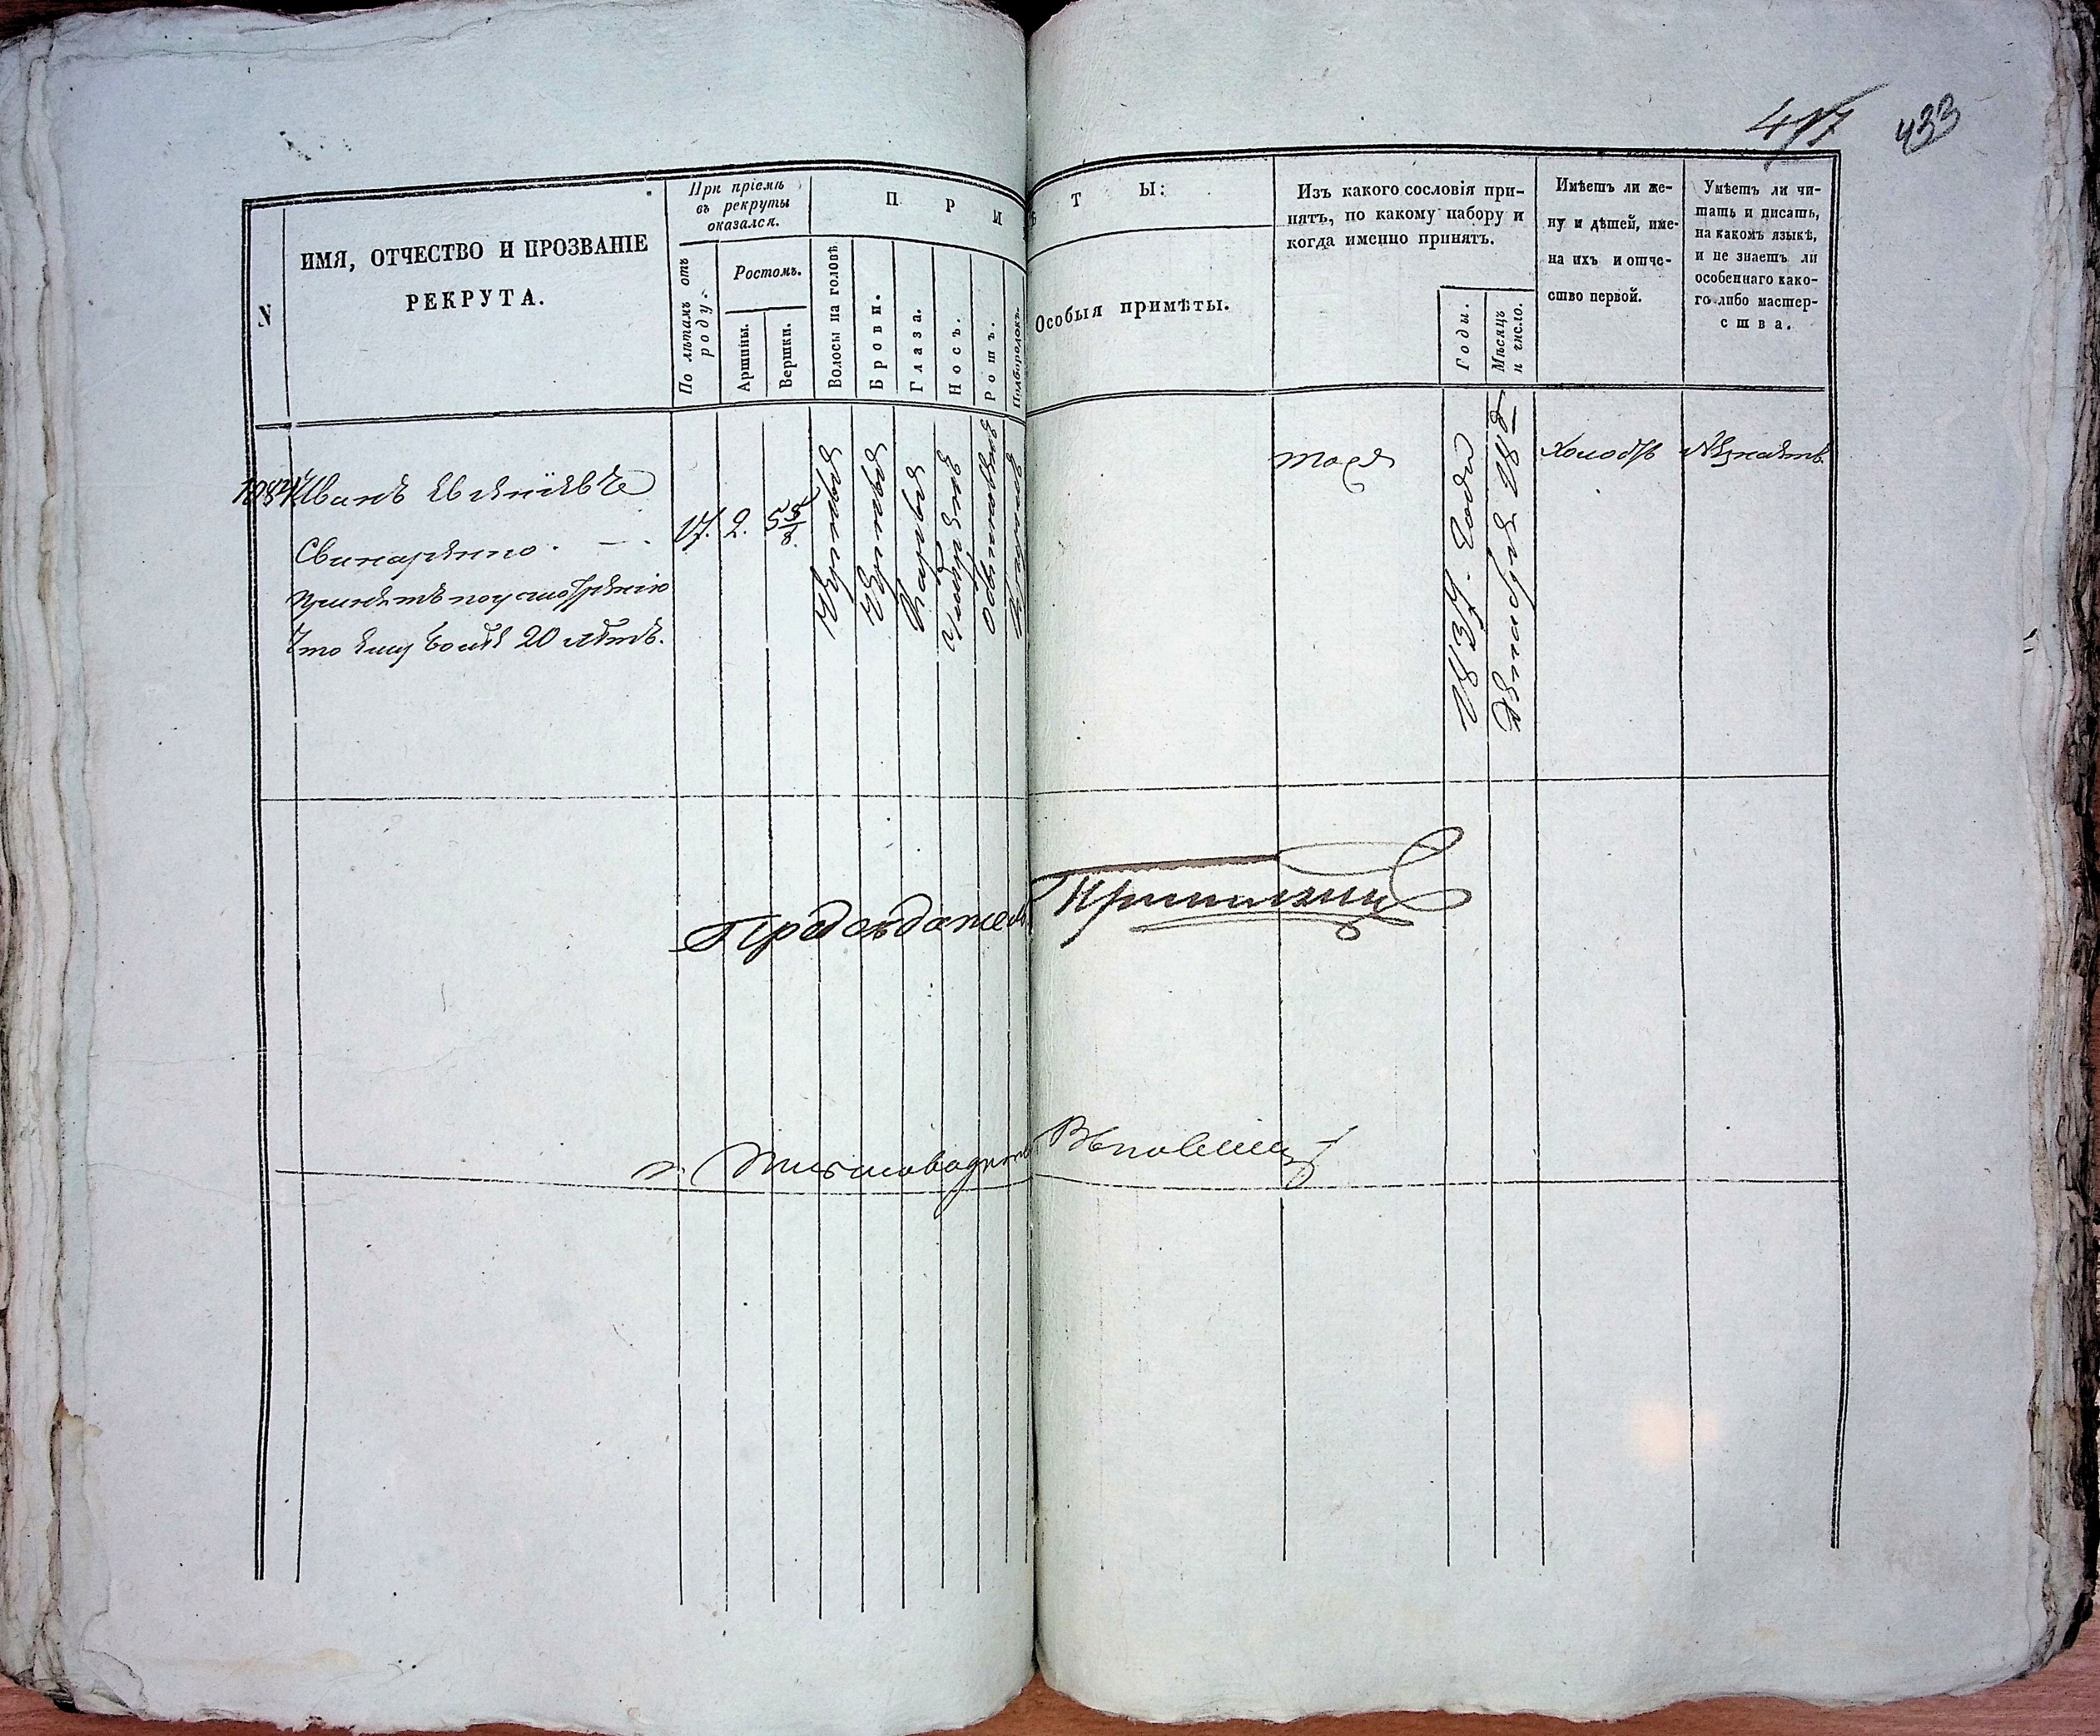 417 433
N
ИМЯ, ОТЧЕСТВО И ПРОЗВАНІЕ
РЕКРУТА.
При пріемѣ
въ рекруты
оказался.
По лѣтамъ отъ
роду.
Ростомъ.
Аршины.
Вершки.
П Р И
Волосы на головѣ
Брови.
Глаза.
Носъ.
Ротъ.
Подбородокъ.
ѣ Т Ы:
Особыя примѣты.
Изъ какого сословія при-
нятъ, по какому набору и
когда именно принятъ.
Годы.
Мѣсяцъ
и число.
Имѣетъ ли же-
ну и дѣтей, име-
на ихъ и отче-
ство первой.
Умѣетъ ли чи-
тать и писать,
на какомъ языкѣ,
и не знаетъ ли
особеннаго како-
го либо мастер-
ства.
Иванъ
Свинаренко.
что ему более 20 летъ.
17. 2. 5 5/8.
Карья
обыкновенъ
тоже
1837. Года
Декабря 18
холостъ
Незнаетъ
Председатель